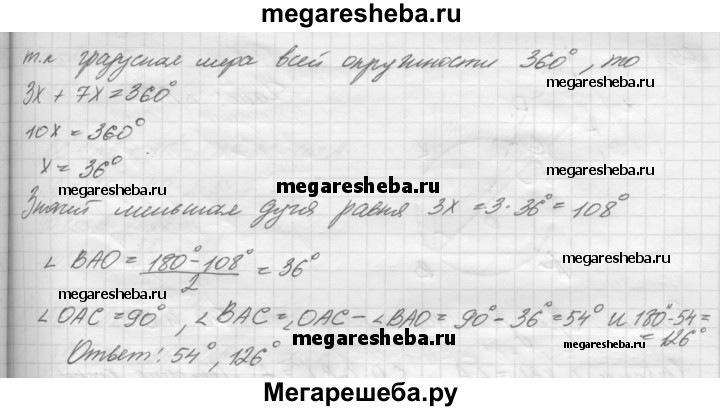 megaresheba.ru
т.к градусная мера всей окружности 360°, то
3x + 7x = 360°
megaresheba.ru
10x = 360°
x = 36°
megaresheba.ru
megaresheba.ru
megaresheba.ru
Значит меньшая дуга равна 3x = 3 · 36° = 108°
∠ BAO = 180° - 108° / 2 = 36°
megaresheba.ru
megaresheba.ru
∠OAC = 90°, ∠BAC = ∠OAC - ∠BAO = 90° - 36° = 54° и 180° - 54 =
= 126°
Ответ: 54°, 126°
megaresheba.ru
megaresheba.ru
Мегарешеба.ру